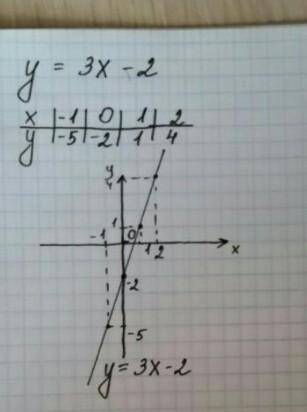 y = 3x - 2
x | -1 | 0 | 1 | 2
y | -5 | -2 | 1 | 4
y
4
-1 1 0 1 2 x
-2
-5
y = 3x - 2